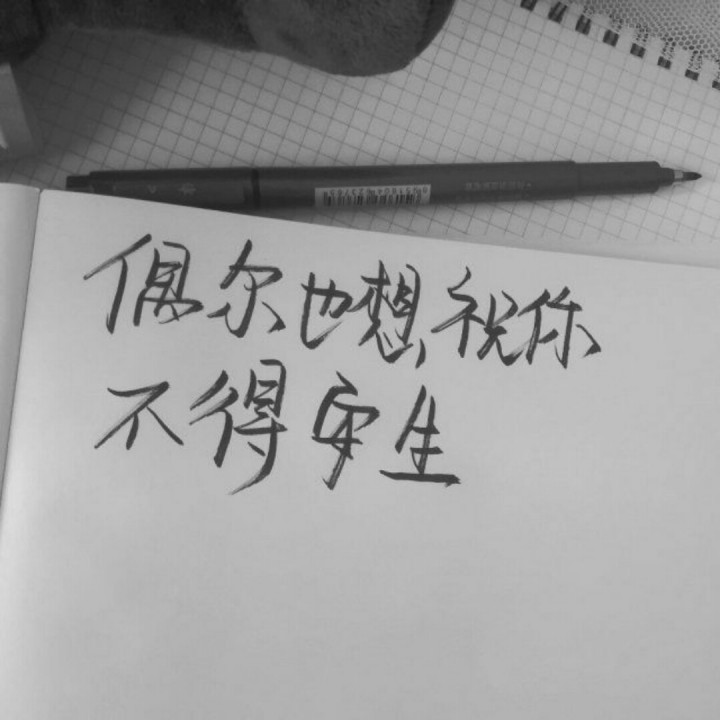 偶尔也想祝你
不得安生